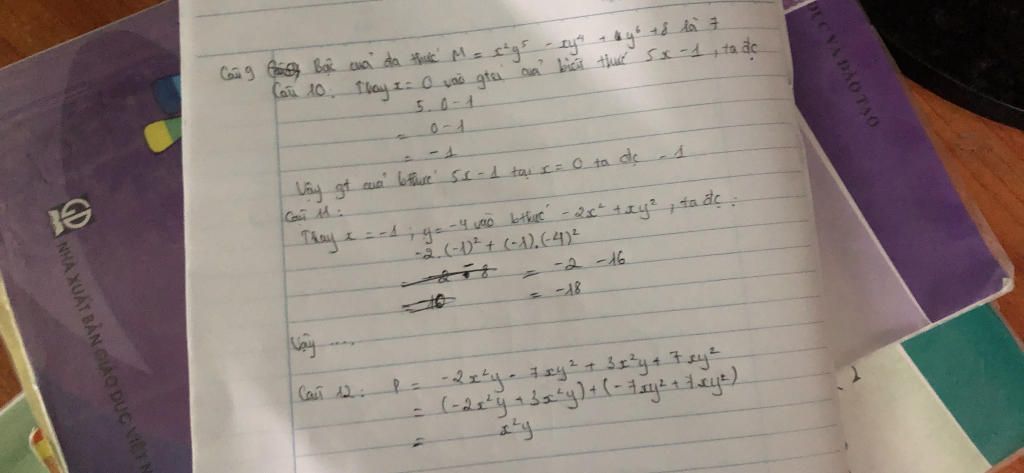 Câu 9 Bậc của đa thức M = x²y⁵ - xy⁴ + y⁶ + 8 là 7
Câu 10: Thay x = 0 vào gtrị của biểu thức 5x - 1, ta đc
5.0-1
= 0-1
= -1
Vậy gt của bthức 5x-1 tại x = 0 ta đc -1
Câu 11:
Thay x = -1 ; y = -4 vào bthức -2x² + xy², ta đc:
-2.(-1)² + (-1).(-4)²
= -2 -16
= -18
Vậy ....
Câu 12: P = -2x²y - 7xy² + 3x²y + 7xy²
= (-2x²y + 3x²y) + (-7xy² + 7xy²)
= x²y
NHÀ XUẤT BẢN GIÁO DỤC VIỆT N
ỤC VÀ ĐÀO TẠO
2